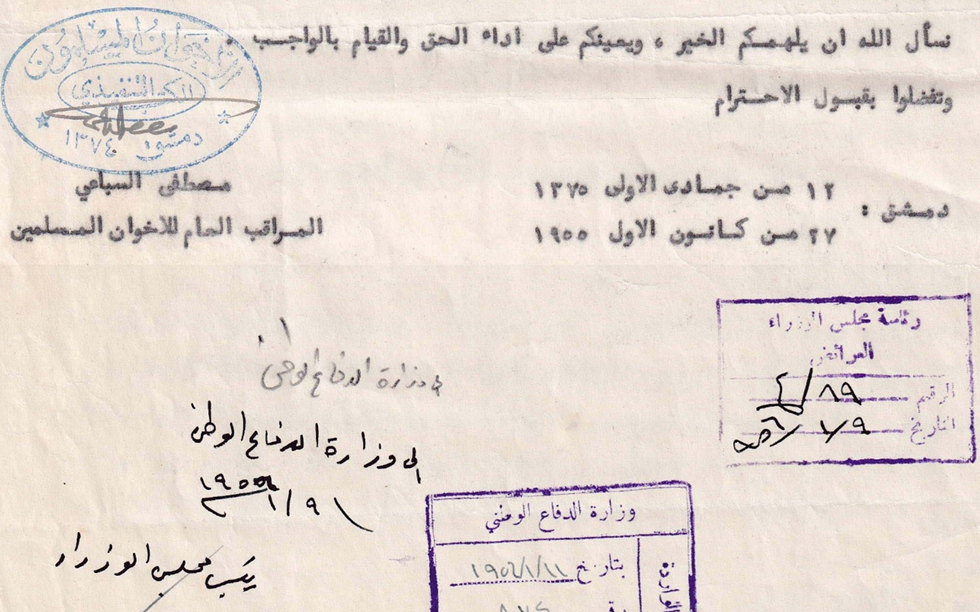 نسأل الله ان يلهمكم الخير ، ويعينكم على اداء الحق والقيام بالواجب .
وتفضلوا بقبول الاحترام
الاخوان المسلمون
المكتب التنفيذي
دمشق ١٣٧٤
دمشق : ١٢ من جمادى الاولى ١٣٧٥
٢٧ من كانون الاول ١٩٥٥
مصطفى السباعي
المراقب العام للاخوان المسلمين
رئاسة مجلس الوزراء
العرائض
الرقم ٨٩/٤
التاريخ ٩/١/
الى وزارة الدفاع الوطني
الى وزارة الدفاع الوطني
٩/١/
رئيس مجلس الوزراء
وزارة الدفاع الوطني
بتاريخ ١١/١/١٩٥٦